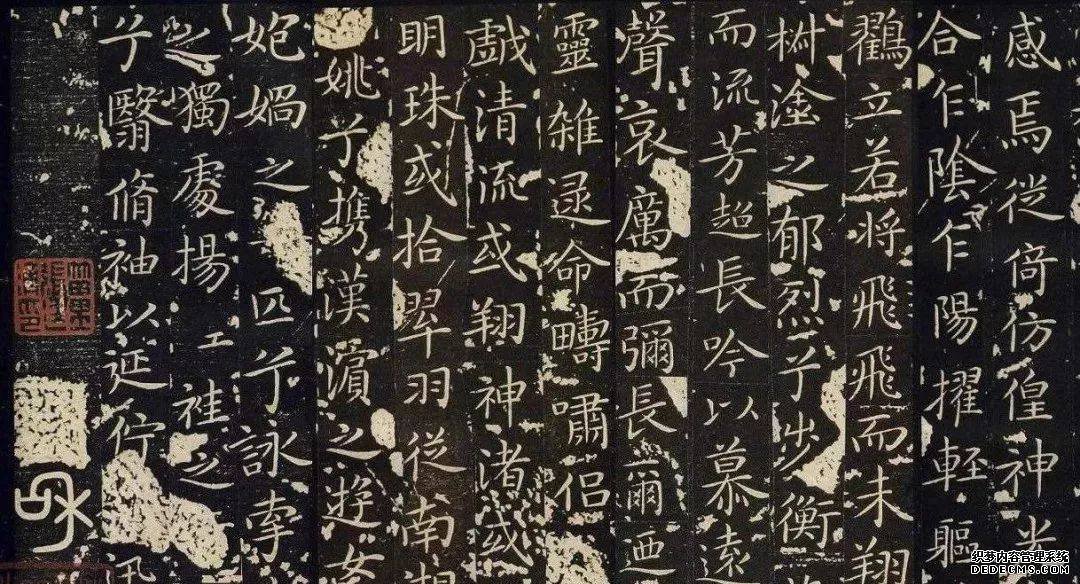 感焉徙倚仿偟神光
合乍陰乍陽擢輕軀
鸖立若將飛飛而未翔
樹塗之郁烈兮步衡
而流芳超長吟以慕遠
聲哀厲而彌長爾迺
靈雜遝命疇嘯侶
戲清流或翔神渚或
明珠或拾翠羽從南湘
姚兮攜漢濱之遊女
媧之匹兮詠牽
之獨處揚袿之
兮翳脩袖以延佇迅
织梦内容管理系统
DEDECMS.COM